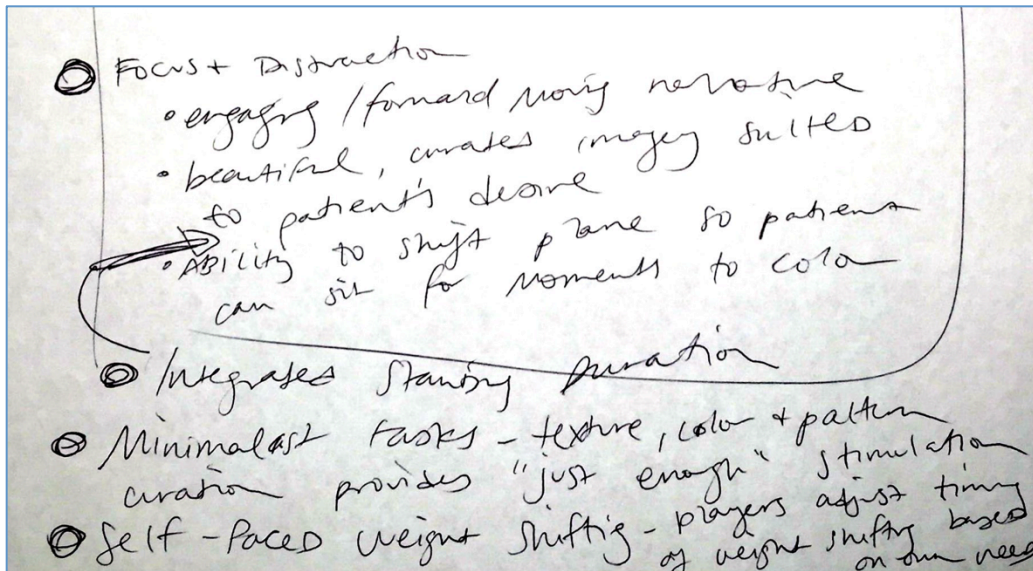 Focus + Distraction
• engaging / forward moving narrative
• beautiful, curated imagery suited
to patient's desire
• Ability to shift plane so patient
can sit for moments to color
Integrated Standing Duration
Minimalist Tasks - texture, color + pattern
curation provides "just enough" stimulation
Self-Paced Weight Shifting - players adjust timing
of weight shifting based
on own need